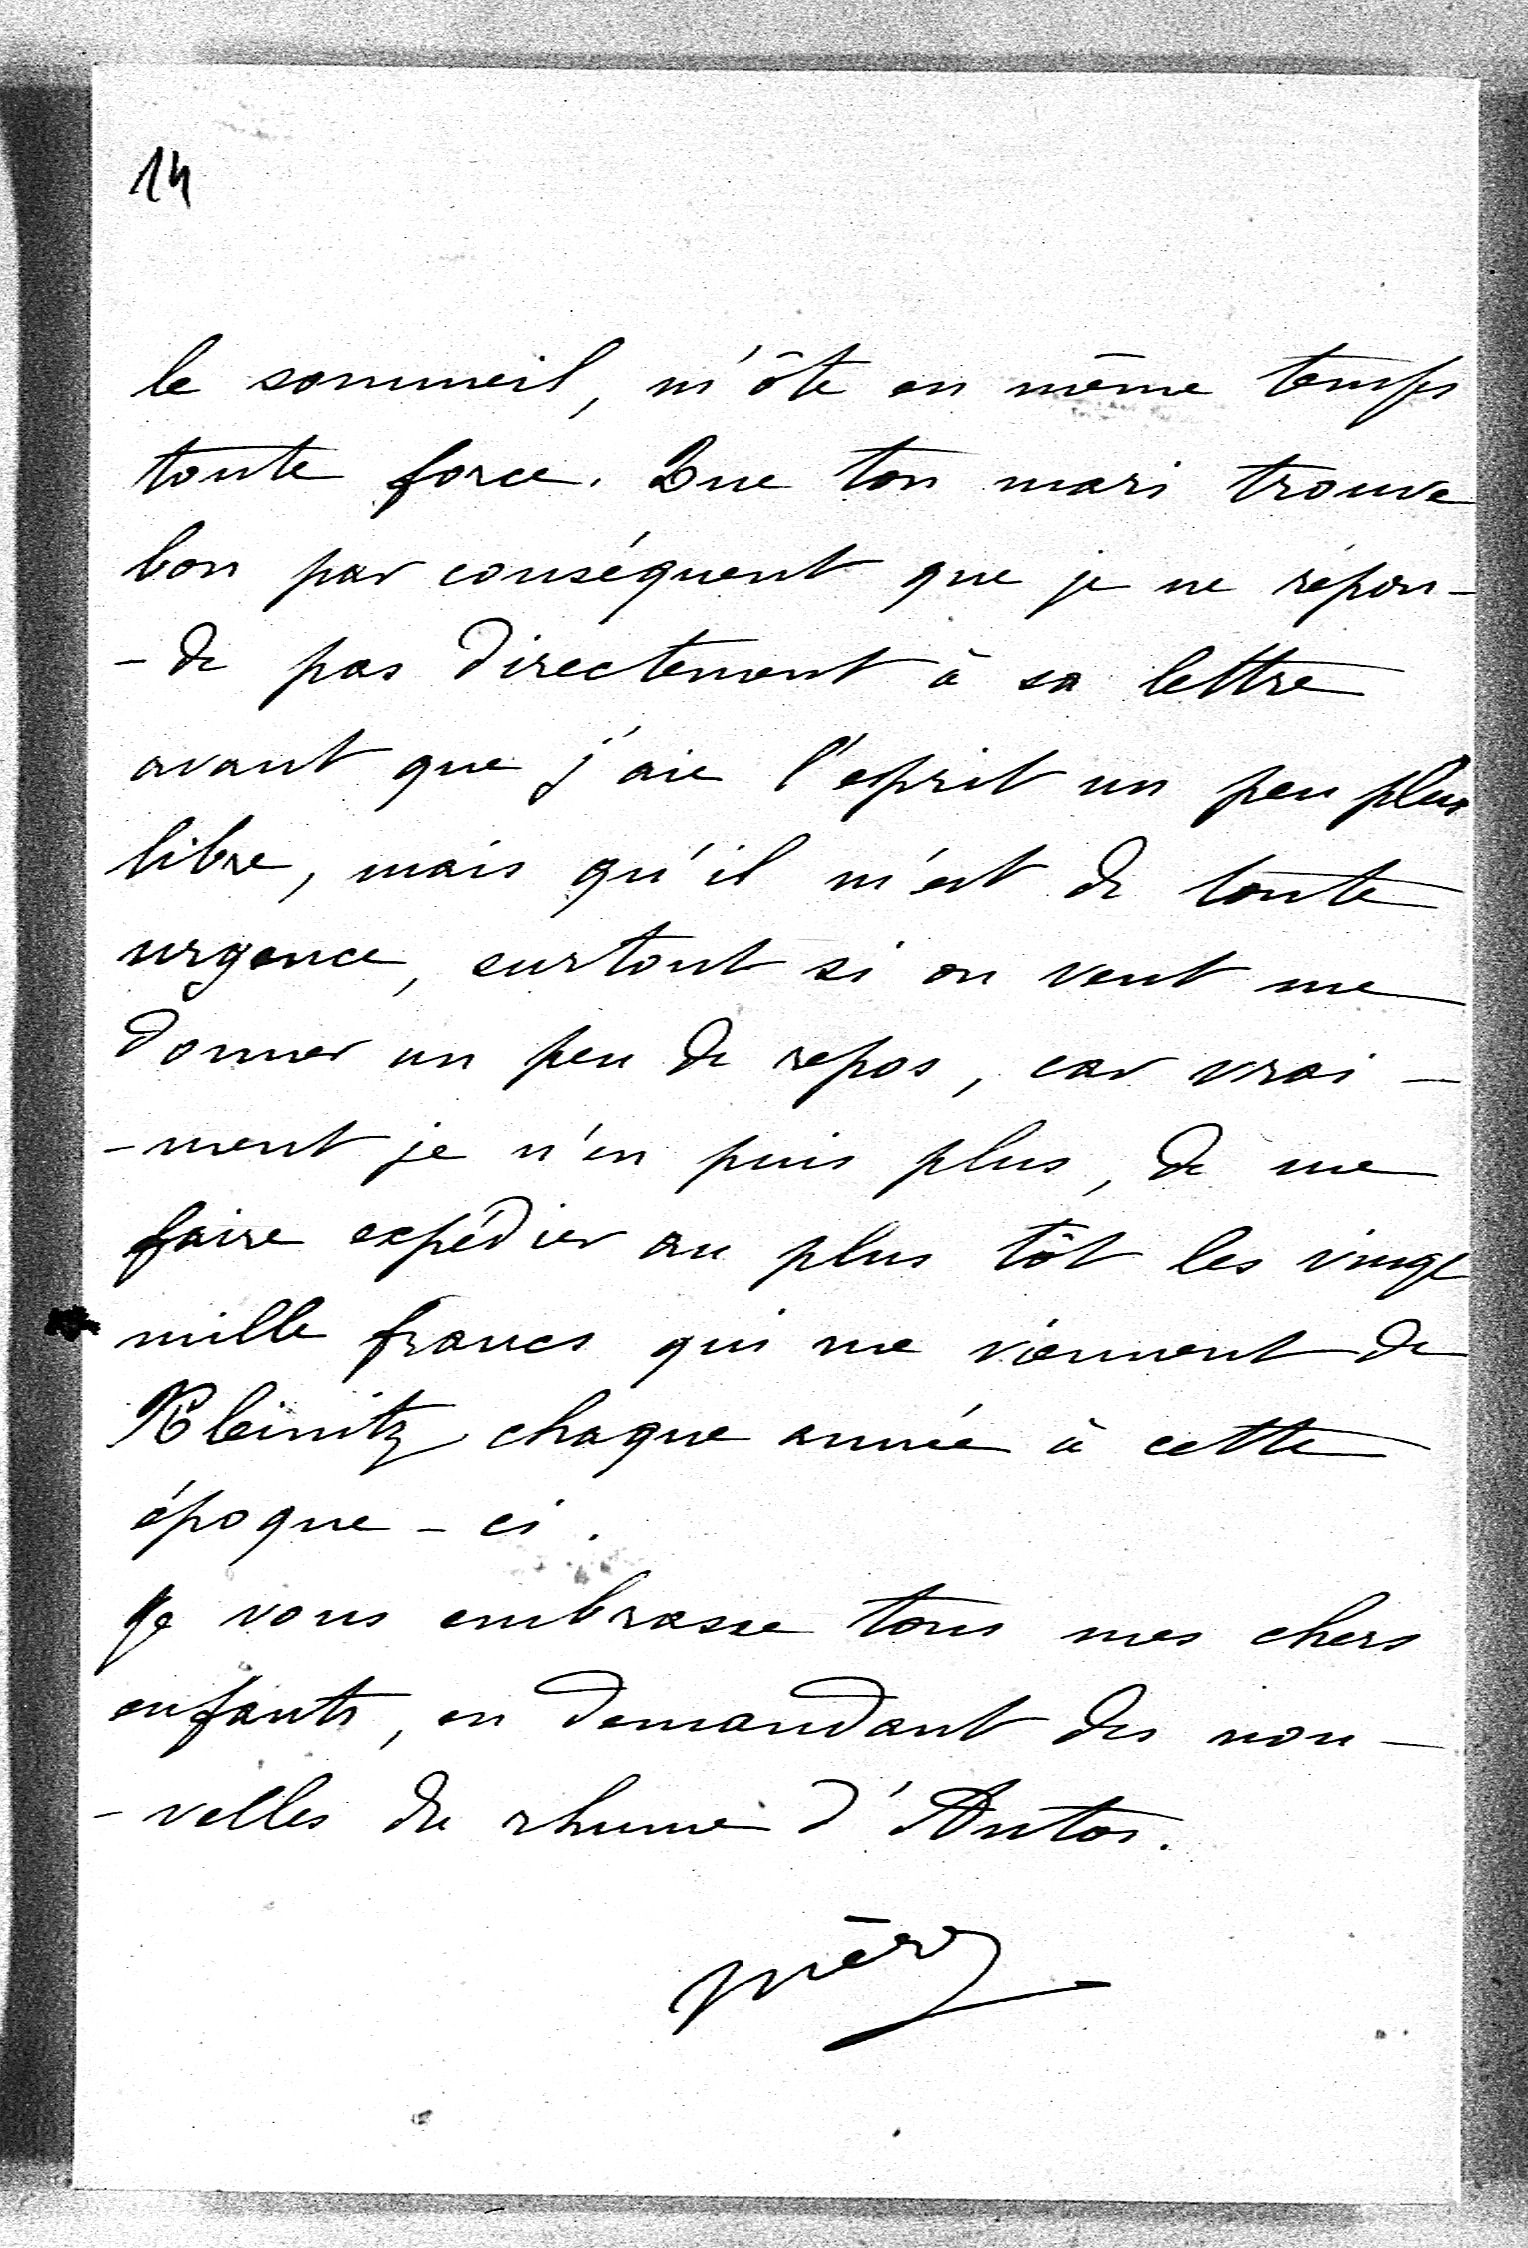 14
le sommeil, m'ôte en même temps
toute force. Que ton mari trouve
bon par conséquent que je ne répon-
-de pas directement à sa lettre
avant que j'aie l'esprit un peu plus
libre, mais qu'il m'est de toute
urgence, surtout si on veut me
donner un peu de repos, car vrai-
-ment je n'en puis plus, de me
faire expédier au plus tôt les vingt
mille francs qui me viennent de
Kleinitz chaque année à cette
époque-ci.
Je vous embrasse tous mes chers
enfants, en demandant des nou-
-velles du rhume d'Antos.
mère